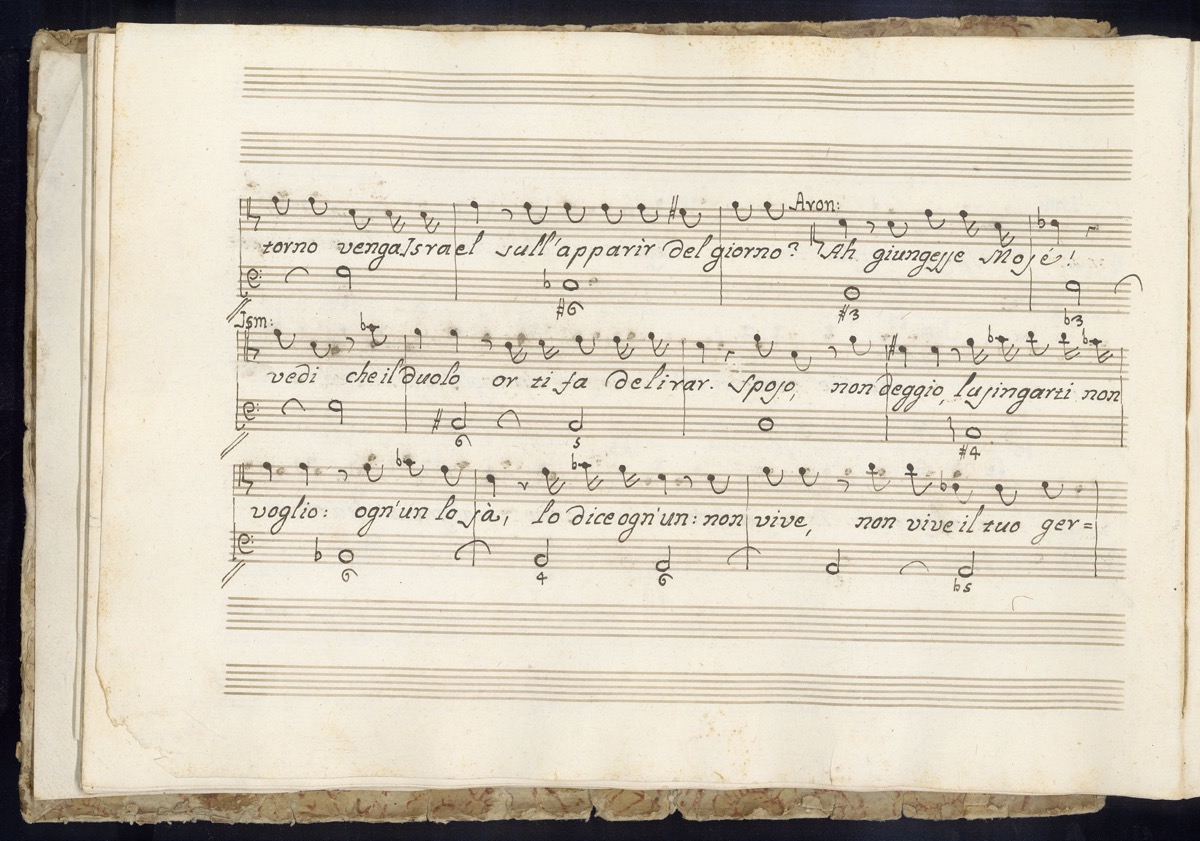 Aron:
torno venga Israel sull'apparir del giorno? Ah giungesse Mosé!
♭ #6 #3 ♭3
Ism:
vedi che il duolo or ti fa delirar. Sposo, non deggio, lusingarti non
6 5 #4
voglio: ogn'un lo sà, lo dice ogn'un: non vive, non vive il tuo ger=
6 4 6 ♭5